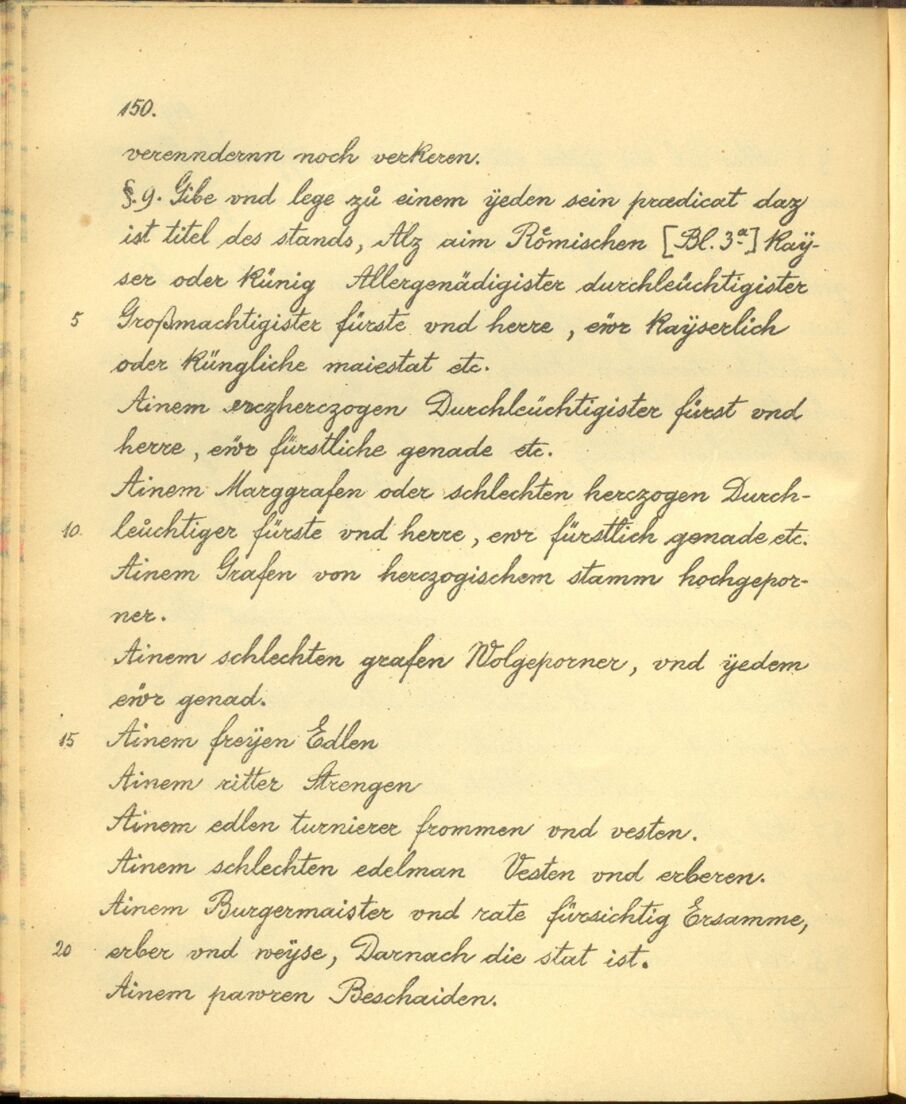 150.
verenndernn noch verkeren.
§. 9. Gibe vnd lege zů einem ÿeden sein prædicat daz
ist titel des stands, Alz aim Römischen [Bl. 3ª] kaÿ-
ser oder künig Allergenädigister durchleüchtigister
5 Großmachtigister fürste vnd herre, eẅr kaÿserlich
oder küngliche maiestat etc.
Ainem erczherczogen Durchleüchtigister fürst vnd
herre, eẅr fürstliche genade etc.
Ainem Marggrafen oder schlechten herczogen Durch-
10 leůchtiger fürste vnd herre, ewr fürstlich genade etc.
Ainem Grafen von herczogischem stamm hochgepor-
ner.
Ainem schlechten grafen Wolgeporner, vnd ÿedem
eẅr genad.
15 Ainem freÿen Edlen
Ainem ritter Strengen
Ainem edlen turnierer frommen vnd vesten.
Ainem schlechten edelman Vesten vnd erberen.
Ainem Burgermaister vnd rate fürsichtig Ersamme,
20 erber vnd weÿse, Darnach die stat ist.
Ainem pawren Beschaiden.